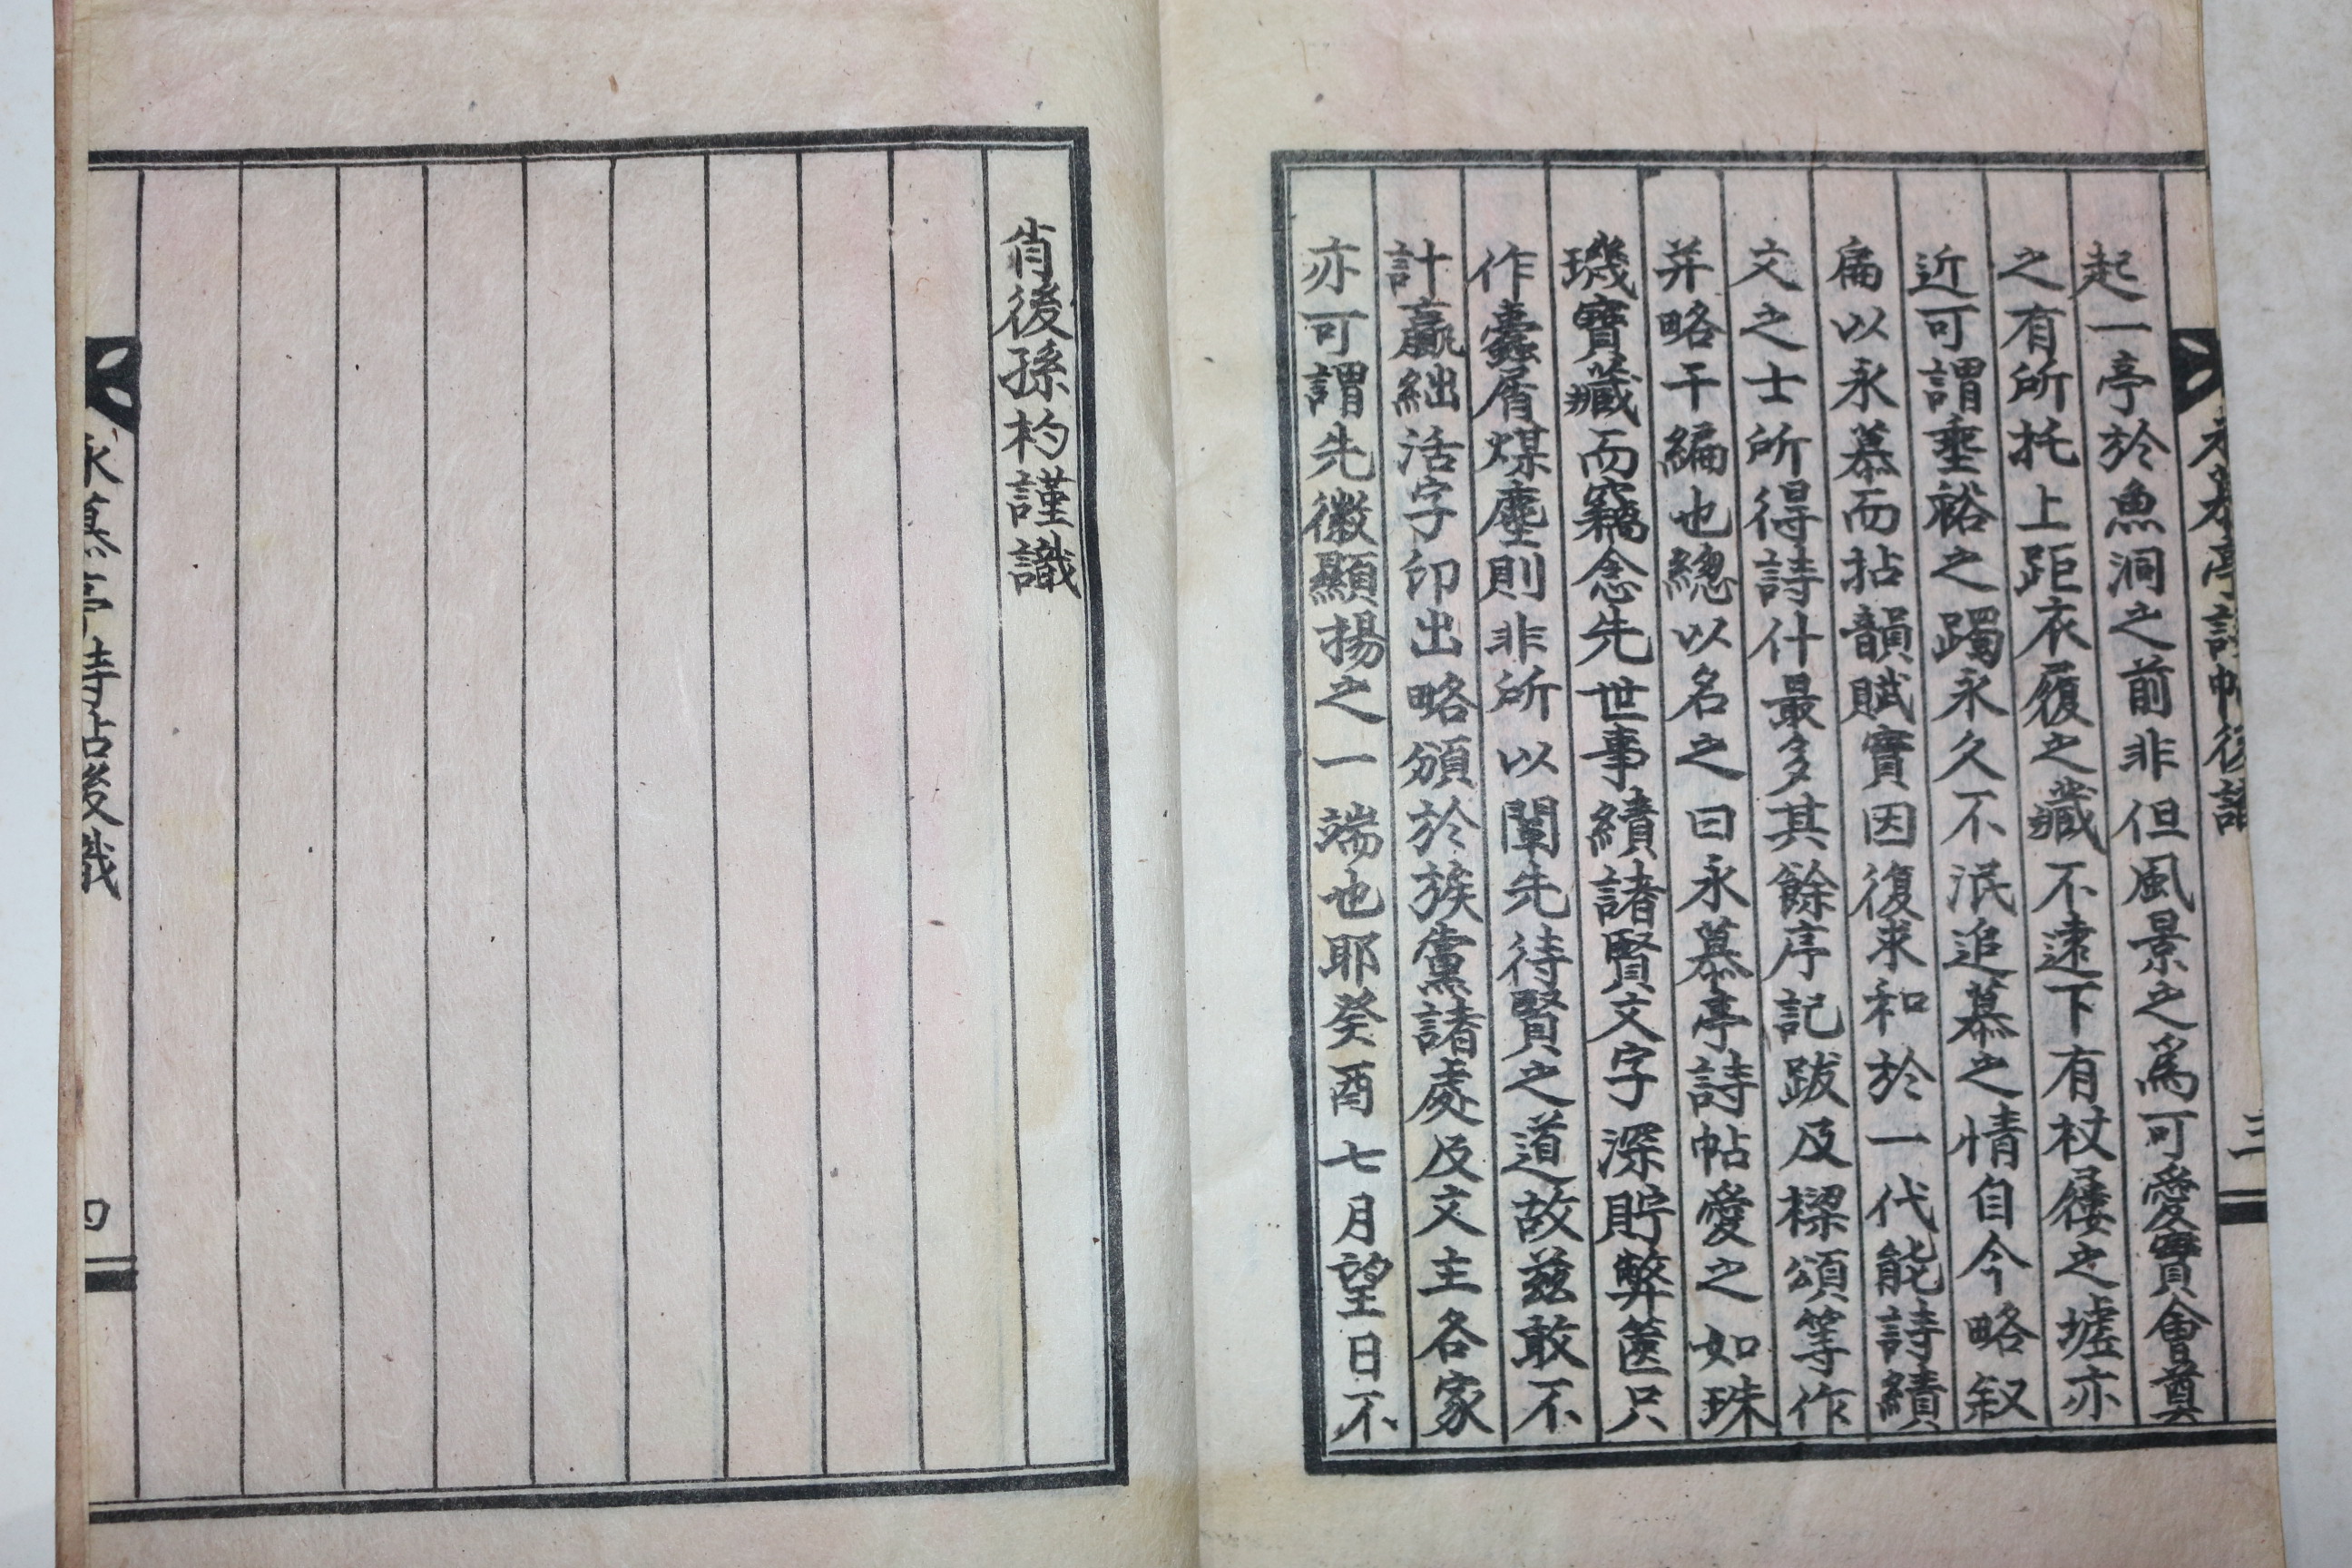 永慕亭詩帖後識
三
起一亭於魚洞之前非但風景之爲可愛實會奠
之有所托上距衣履之藏不遠下有杖屨之墟亦
近可謂垂裕之躅永久不泯追慕之情自今略叙
扁以永慕而拈韻賦實因復求和於一代能詩績
文之士所得詩什最多其餘序記跋及樑頌等作
并略干編也總以名之曰永慕亭詩帖愛之如珠
璣寶藏而竊念先世事績諸賢文字深貯弊篋只
作蠹屑煤塵則非所以闡先待賢之道故玆敢不
計贏絀活字印出略頒於族黨諸處及文主各家
亦可謂先徽顯揚之一端也耶癸酉七月望日不
肖後孫杓謹識
永慕亭詩帖後識
四